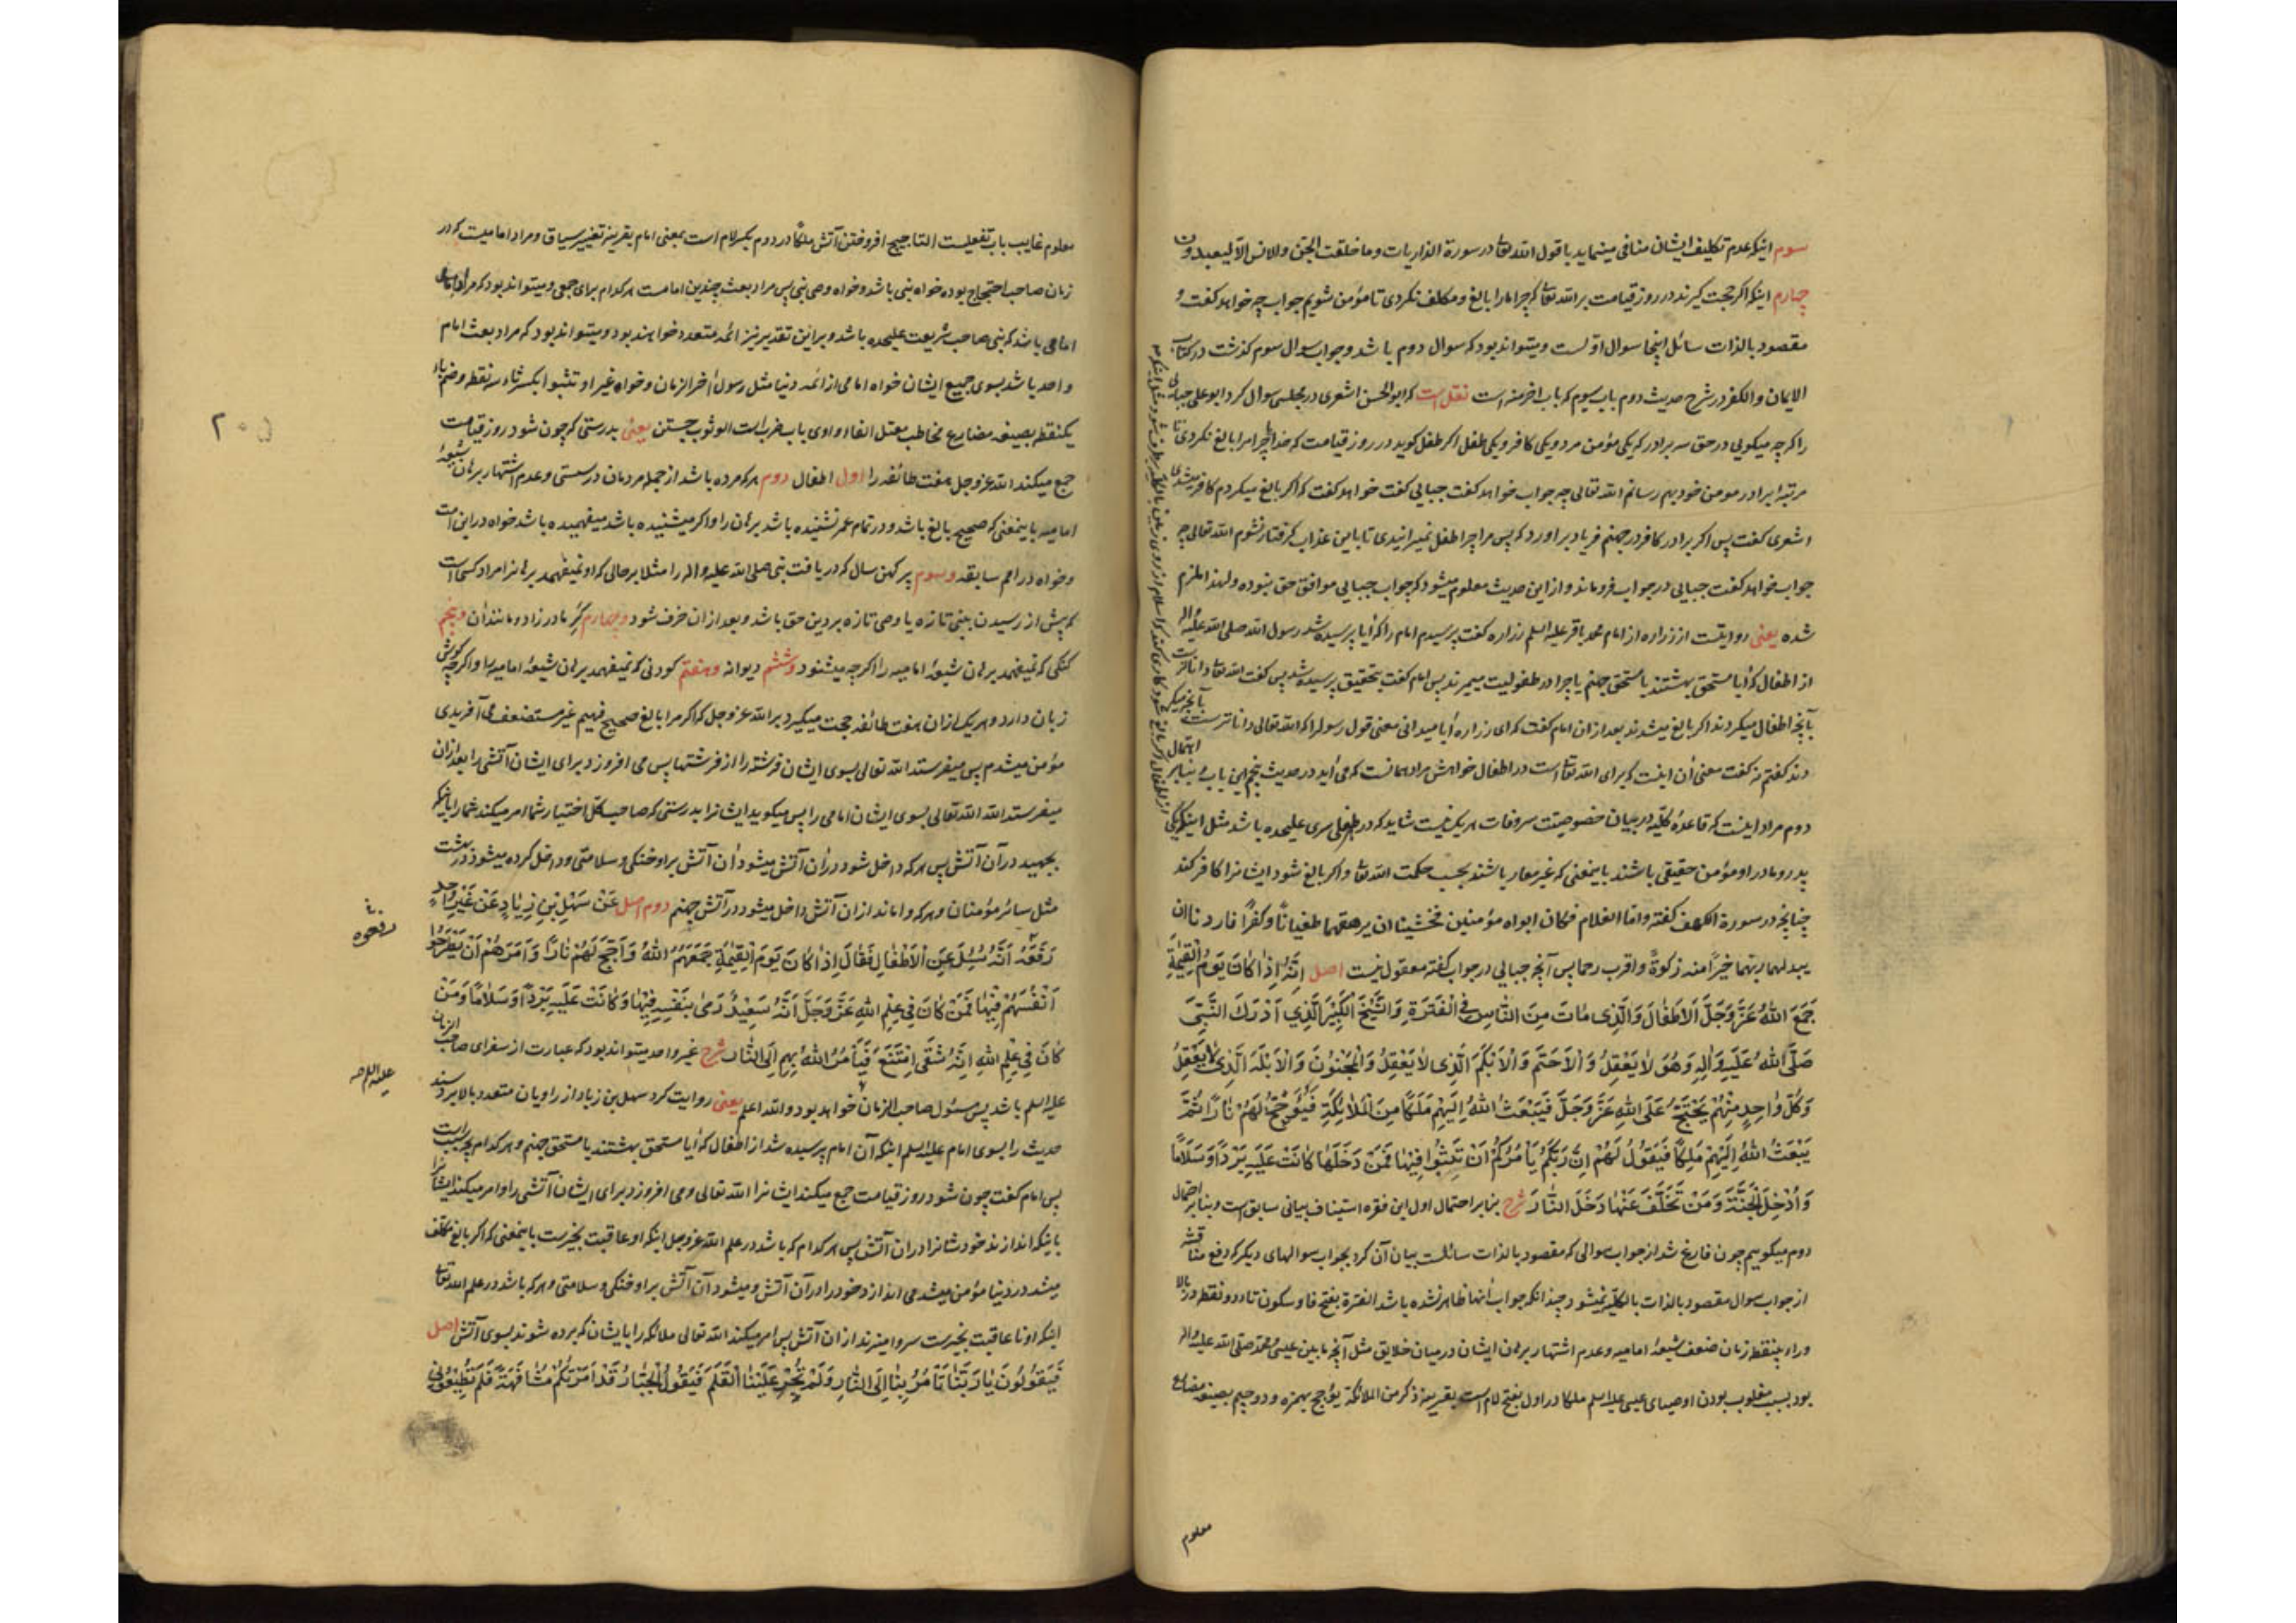 سوم اینکه عدم تکلیف ایشان منافی مینماید با قول الله تعالی در سورة الذاریات وما خلقت الجن والانس الا لیعبدون
چهارم اینکه اکر حجت کیرند در روز قیامت بر الله تعالی که چرا ما را بالغ و مکلف نکردی تا مؤمن شویم جواب چه خواهد کفت و
مقصود بالذات سائل اینجا سوال اولست و میتواند بود که سوال دوم باشد و جواب سوال سوم کذشت در کتاب
الایمان والکفر در شرح حدیث دوم باب سیوم که باب اخر منه است نقل است که ابو الحسن اشعری در مجلسی سوال کرد ابو علی جبایی
را که چه میکویی در حق سه برادر که یکی مؤمن مرد و یکی کافر و یکی طفل اکر طفل کوید در روز قیامت که خدایا چرا مرا بالغ نکردی تا
مرتبه برادر مومن خود بهم رسانم الله تعالی چه جواب خواهد کفت جبایی کفت خواهد کفت که اکر بالغ میکردم کافر میشدی
اشعری کفت پس اکر برادر کافر در جهنم فریاد براورد که پس مرا چرا طفل نمیرانیدی تا باین عذاب کرفتار نشوم الله تعالی چه
جواب خواهد کفت جبایی در جواب فرو ماند و از این حدیث معلوم میشود که جواب جبایی موافق حق نبوده و لهذا ملزم
شده یعنی روایتست از زراره از امام محمد باقر علیه السلم زراره کفت پرسیدم امام را که آیا پرسیده شد رسول الله صلی الله علیه واله
از اطفال که آیا مستحق بهشتند یا مستحق جهنم یا چرا در طفولیت میمرند پس امام کفت بتحقیق پرسیده شد پس کفت الله تعالی داناتر است
بآنچه اطفال میکردند اکر بالغ میشدند بعد از ان امام کفت که ای زراره آیا میدانی معنی قول رسول را که الله تعالی داناتر است بآنچه میکر
دند کفتم نه کفت معنی آن اینست که برای الله تعالی است در اطفال خواهش مراد همانست که می آید در حدیث پنجم این باب و بنابر احتمال
دوم مراد اینست که قاعده کلیه در بیان خصوصیت سر وفات هر یک نیست شاید که در هر طفلی سری علیحده باشد مثل اینکه یکی
پدر و مادر او مؤمن حقیقی باشند باینمعنی که غیر معار باشند بحسب حکمت الله تعالی و اکر بالغ شود ایشانرا کافر کند
چنانچه در سورة الکهف کفته واما الغلام فکان ابواه مؤمنین فخشینا ان یرهقهما طغیانا وکفرا فاردنا ان
یبدلهما ربهما خیرا منه زکوة واقرب رحما پس آنچه جبایی در جواب کفته معقول نیست اصل اِنَّهُ اِذَا کَانَ یَوْمُ الْقِیٰمَةِ
جَمَعَ اللّٰهُ عَزَّ وَجَلَّ الْاَطْفَالَ وَالَّذِی مَاتَ مِنَ النَّاسِ فِی الْفَتْرَةِ وَالشَّیْخَ الْکَبِیْرَ الَّذِی اَدْرَکَ النَّبِیَّ
صَلَّی اللّٰهُ عَلَیْهِ وَاٰلِهِ وَهُوَ لَا یَعْقِلُ وَالْاَصَمَّ وَالْاَبْکَمَ الَّذِی لَا یَعْقِلُ وَالْمَجْنُوْنَ وَالْاَبْلَهَ الَّذِی لَا یَعْقِلُ
وَکُلُّ وَاحِدٍ مِنْهُمْ یَحْتَجُّ عَلَی اللّٰهِ عَزَّ وَجَلَّ فَیَبْعَثُ اللّٰهُ اِلَیْهِمْ مَلَکًا مِنَ الْمَلَائِکَةِ فَیُؤَجِّجُ لَهُمْ نَارًا ثُمَّ
یَبْعَثُ اللّٰهُ اِلَیْهِمْ مَلِکًا فَیَقُوْلُ لَهُمْ اِنَّ رَبَّکُمْ یَاْمُرُکُمْ اَنْ تَثِبُوا فِیْهَا فَمَنْ دَخَلَهَا کَانَتْ عَلَیْهِ بَرْدًا وَسَلَامًا
وَاُدْخِلَ الْجَنَّةَ وَمَنْ تَخَلَّفَ عَنْهَا دَخَلَ النَّارَ شرح بنابر احتمال اول این فقره استیناف بیانی سابق است و بنابر احتمال
دوم میکوییم چون فارغ شد از جواب سوالی که مقصود بالذات سائلست بیان آن کرد بجواب سوالهای دیکر که دفع مناقشه
از جواب سوال مقصود بالذات بالکلیه نمیشود چندانکه جواب آنها ظاهر نشده باشد الفترة بفتح فا و سکون تاء دو نقطه در بالا
وراء بینقطه زمان ضعف شیعهٔ امامیه و عدم اشتهار برهان ایشان در میان خلایق مثل آنچه ما بین عیسی و محمد صلی الله علیه واله
بود بسبب مغلوب بودن اوصیای عیسی علیه السلم ملکا در اول بفتح لام است بقرینه ذکر من الملائکة یؤجج بهمزه و دو جیم بصیغه مضارع
معلوم
معلوم غایب باب تفعیلست التاجیج افروختن آتش ملکا در دوم بکسر لام است بمعنی امام بقرینه تغییر سیاق و مراد امامیست که در
زمان صاحب احتجاج بوده خواه نبی باشد و خواه وصی نبی پس مراد بعث چندین امامست هر کدام برای جمعی و میتواند بود که مراد
امامی باشد که نبی صاحب شریعت علیحده باشد و بر این تقدیر نیز ائمه متعدد خواهند بود و میتواند بود که مراد بعث امام
واحد باشد بسوی جمیع ایشان خواه امامی از ائمه دنیا مثل رسول آخر الزمان و خواه غیر او تثبوا بکسر ثاء سه نقطه و ضم باء
یکنقطه بصیغه مضارع مخاطب معتل الفاء واوی باب ضرب است الوثوب جستن یعنی بدرستی که چون شود روز قیامت
جمع میکند الله عز وجل هفت طائفه را اول اطفال دوم هر که مرده باشد از جمله مردمان در سستی و عدم اشتهار برهان شیعهٔ
امامیه باینمعنی که صحیح بالغ باشد و در تمام عمر نشنیده باشد برهان را و اکر میشنیده باشد میفهمیده باشد خواه در این امت
و خواه در امم سابقه وسوم پیر کهن سال که دریافت نبی صلی الله علیه واله را مثلا بر حالی که او نمیفهمد برهانرا مراد کسی است
که پیش از رسیدن بنبی تازه یا وصی تازه بر دین حق باشد و بعد از ان خرف شود وچهارم کر مادر زاد و مانند آن وپنجم
کنکی که نمیفهمد برهان شیعهٔ امامیه را اکر چه میشنود وششم دیوانه وهفتم کودنی که نمیفهمد برهان شیعهٔ امامیه را و اکر چه کوش
زبان دارد و هر یک از ان هفت طائفه حجت میکیرد بر الله عز وجل که اکر مرا بالغ صحیح فهیم غیر مستضعف می آفریدی
مؤمن میشدم پس میفرستد الله تعالی بسوی ایشان فرشته را از فرشتها پس می افروزد برای ایشان آتشی را بعد از ان
میفرستد الله تعالی بسوی ایشان امامی را پس میکوید ایشانرا بدرستی که صاحب کل اختیار شما امر میکند شما را باینکه
بجهید در آن آتش پس هر که داخل شود در ان آتش میشود آن آتش بر او خنکی و سلامتی و داخل کرده میشود در بهشت
مثل سائر مؤمنان و هر که واماند از ان آتش داخل میشود در آتش جهنم دوم اصل عَنْ سَهْلِ بْنِ زِیَادٍ عَنْ غَیْرِ وَاحِدٍ
رَفَعَهُ اَنَّهُ سُئِلَ عَنِ الْاَطْفَالِ فَقَالَ اِذَا کَانَ یَوْمُ الْقِیٰمَةِ جَمَعَهُمُ اللّٰهُ وَاَجَّجَ لَهُمْ نَارًا وَاَمَرَهُمْ اَنْ یَطْرَحُوا
اَنْفُسَهُمْ فِیْهَا فَمَنْ کَانَ فِی عِلْمِ اللّٰهِ عَزَّ وَجَلَّ اَنَّهُ سَعِیْدٌ رَمَی بِنَفْسِهِ فِیْهَا وَکَانَتْ عَلَیْهِ بَرْدًا وَسَلَامًا وَمَنْ
کَانَ فِی عِلْمِ اللّٰهِ اِنَّهُ شَقِیٌّ اِمْتَنَعَ فَیَاْمُرُ اللّٰهُ بِهِمْ اِلَی النَّارِ شرح غیر واحد میتواند بود که عبارت از سفرای صاحب الزمان
علیه السلم باشد پس مسئول صاحب الزمان خواهد بود والله اعلم یعنی روایت کرد سهل بن زیاد از راویان متعدد بالا بردند
حدیث را بسوی امام علیه السلم اینکه آن امام پرسیده شد از اطفال که آیا مستحق بهشتند یا مستحق جهنم و هر کدام بچه سبب است
پس امام کفت چون شود روز قیامت جمع میکند ایشانرا الله تعالی و می افروزد برای ایشان آتشی را و امر میکند ایشانرا
باینکه اندازند خودشانرا در ان آتش پس هر کدام که باشد در علم الله عز وجل اینکه او عاقبت بخیرست باینمعنی که اکر بالغ مکلف
میشد در دنیا مؤمن میشد می اندازد خود را در آن آتش و میشود آن آتش بر او خنکی و سلامتی و هر که باشد در علم الله تعالی
اینکه او نا عاقبت بخیرست سر وا میزند از ان آتش پس امر میکند الله تعالی ملائکه را بایشان که برده شوند بسوی آتش اصل
فَیَقُوْلُوْنَ یَا رَبَّنَا تَاْمُرُ بِنَا اِلَی النَّارِ وَلَمْ یَجْرِ عَلَیْنَا الْقَلَمُ فَیَقُوْلُ الْجَبَّارُ قَدْ اَمَرْتُکُمْ مُشَافَهَةً فَلَمْ تُطِیْعُوْنِی
۲۰۵